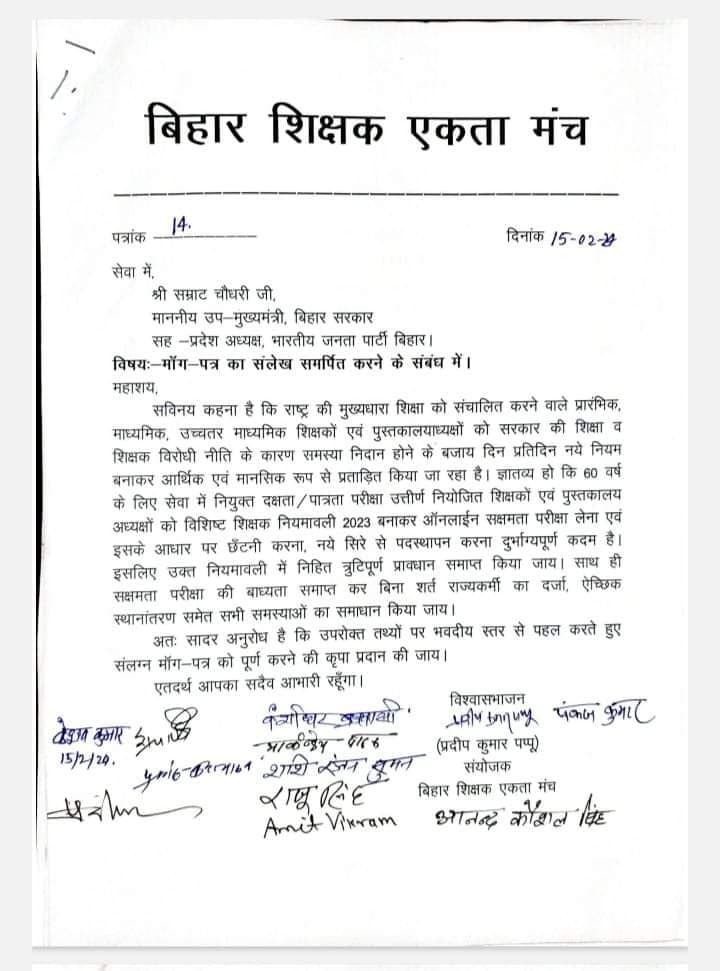 बिहार शिक्षक एकता मंच
पत्रांक 14.
दिनांक 15-02-24
सेवा में,
श्री सम्राट चौधरी जी,
माननीय उप–मुख्यमंत्री, बिहार सरकार
सह –प्रदेश अध्यक्ष, भारतीय जनता पार्टी बिहार।
विषयः–मॉग–पत्र का संलेख समर्पित करने के संबंध में।
महाशय,
सविनय कहना है कि राष्ट्र की मुख्यधारा शिक्षा को संचालित करने वाले प्रारंभिक,
माध्यमिक, उच्चतर माध्यमिक शिक्षकों एवं पुस्तकालयाध्यक्षों को सरकार की शिक्षा व
शिक्षक विरोधी नीति के कारण समस्या निदान होने के बजाय दिन प्रतिदिन नये नियम
बनाकर आर्थिक एवं मानसिक रूप से प्रताड़ित किया जा रहा है। ज्ञातव्य हो कि 60 वर्ष
के लिए सेवा में नियुक्त दक्षता/पात्रता परीक्षा उत्तीर्ण नियोजित शिक्षकों एवं पुस्तकालय
अध्यक्षों को विशिष्ट शिक्षक नियमावली 2023 बनाकर ऑनलाईन सक्षमता परीक्षा लेना एवं
इसके आधार पर छँटनी करना, नये सिरे से पदस्थापन करना दुर्भाग्यपूर्ण कदम है।
इसलिए उक्त नियमावली में निहित त्रुटिपूर्ण प्रावधान समाप्त किया जाय। साथ ही
सक्षमता परीक्षा की बाध्यता समाप्त कर बिना शर्त राज्यकर्मी का दर्जा, ऐच्छिक
स्थानांतरण समेत सभी समस्याओं का समाधान किया जाय।
अतः सादर अनुरोध है कि उपरोक्त तथ्यों पर भवदीय स्तर से पहल करते हुए
संलग्न मॉग–पत्र को पूर्ण करने की कृपा प्रदान की जाय।
एतदर्थ आपका सदैव आभारी रहूँगा।
विश्वासभाजन
पंकज कुमार
कुमार
15/2/24.
(प्रदीप कुमार पप्पू)
मार्कण्डेय पाठक
संयोजक
शशि रंजन सुमन
बिहार शिक्षक एकता मंच
राजू सिंह
आनन्द कौशल सिंह
Amit Vikram